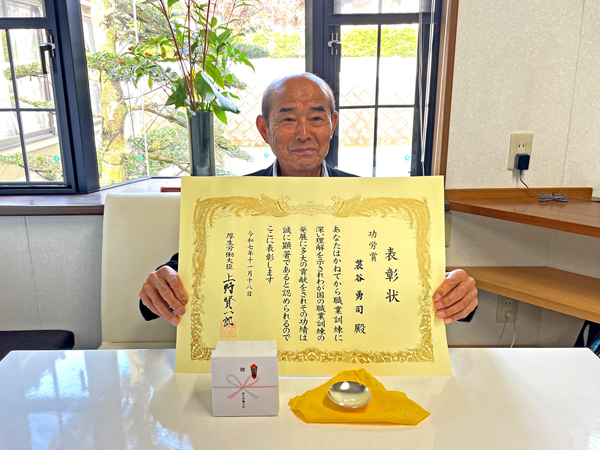 表彰状
功労賞
蓑谷 勇司 殿
あなたはかねてから職業訓練に
深い理解を示されわが国の職業訓練の
発展に多大の貢献をされその功績は
誠に顕著であると認められるので
ここに表彰します
令和七年十一月十八日
厚生労働大臣 上野賢一郎